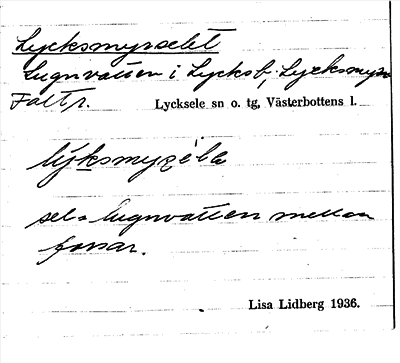 Lycksmyrselet
Lugnvatten i Lycksb., Lycksmyr
Lycksele sn o. tg, Västerbottens l.
sel = lugnvatten mellan
forsar.
Lisa Lidberg 1936.